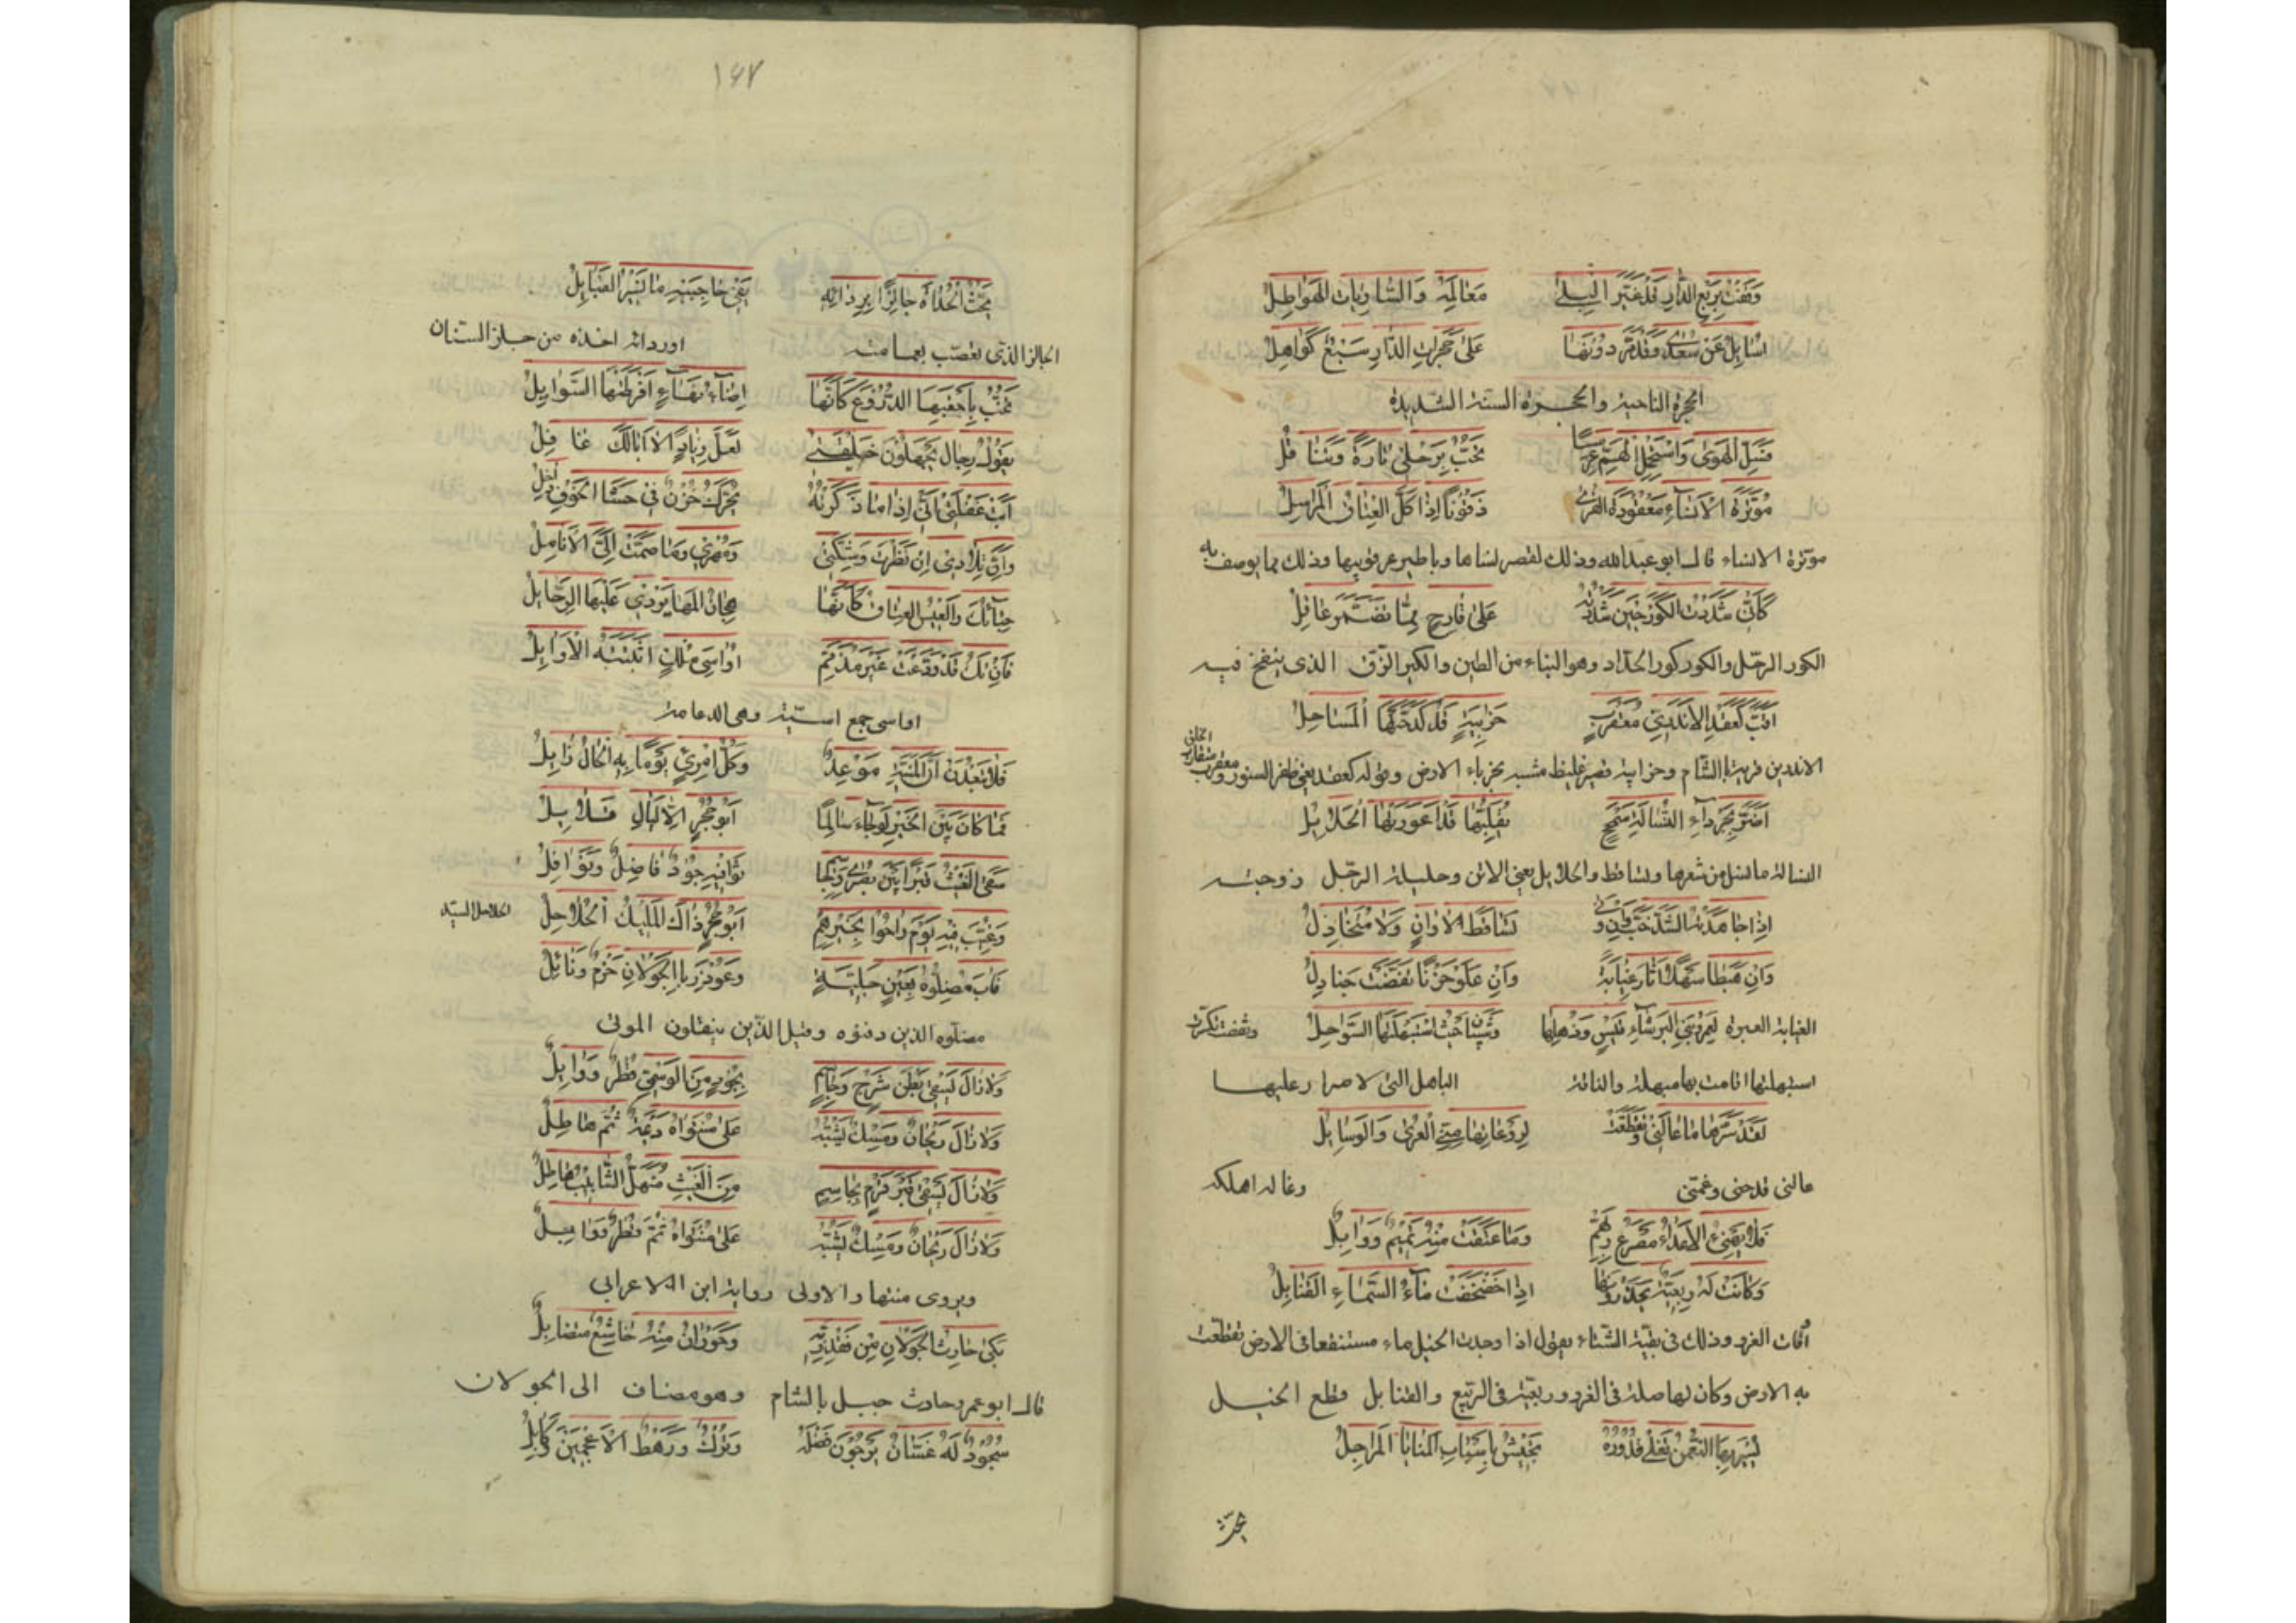 وَقَفْتُ بِرَبْعِ الدَّارِ قَدْ غَيَّرَ البِلَى مَعَالِمَهُ وَالسَّارِيَاتُ الهَوَاطِلُ
اُسَائِلُ عَنْ سُعْدَى وَقَدْ مَرَّ دُونَهَا عَلَى حَجَرَاتِ الدَّارِ سَبْعٌ كَوَامِلُ
الحجرة الناحية والحجرة السنة الشديدة
فَسَلِّ الهَوَى وَاسْتَحْمِلِ الهَمَّ عِرْمِسًا تَخُبُّ بِرَحْلِي تَارَةً وَتُنَاقِلُ
مُوَتَّرَةُ الأَنْسَاءِ مَعْقُودَةُ القَرَى ذَقُونًا اِذَا كَلَّ العِتَاقُ المَرَاسِلُ
موترة الانساء قال ابو عبدالله وذلك لقصر نساها وباطير عرقوبيها وذلك مما يوصف به
كَأَنِّي شَدَدْتُ الكُورَ حِينَ شَدَدْتُهُ عَلَى قَارِحٍ مِمَّا تَضَمَّنَ عَاقِلُ
الكور الرحل والكور كور الحداد وهو البناء من الطين والكير الزق الذى ينفخ فيه
اَقَبَّ كَعَقْدِ الاَنْدَرِيِّ مُعَقْرَبٍ حَزَابِيَةٍ قَدْ كَدَّحَتْهَا المَسَاحِلُ
الاندرين قرية بالشام وحزابية قصير غليظ مشبه بحزباء الارض وقوله كعقد يعنى ظفر السنور ومعقرب متقارب الخلق
اَضَرَّ بِجَرْدَاءِ النُّسَالَةِ سَمْحَجٍ يُقَلِّبُهَا قَدْ اَعْوَزَتْهَا الحَلَائِلُ
النسالة ما انسل من شعرها وتساقط والحلايل يعنى الاتن وحليلة الرجل زوجته
اِذَا جَاهَدَتْهُ الشَّدَّ جَدَّ وَإِنْ وَنَتْ تَسَاقَطَ لَا وَانٍ وَلَا مُتَخَاذِلُ
وَاِنْ هَبَطَا سَهْلًا اَثَارَا غَيَابَةً وَاِنْ عَلَوَا حَزْنًا تَقَضَّتْ جَنَادِلُ
الغيابة الغبرة لَعَمْرُ بَنِي البَرْشَاءِ قَيْسٍ وَذُهْلِهَا وَشَيْبَانَ حَيْثُ اسْتَبْهَلَتْهَا السَّوَاحِلُ وتقضت تكسرت
استبهلتها اقامت بها مبهلة والناقة الباهل التى لا صرار عليها
لَقَدْ سَرَّهَا مَا غَالَنِي وَتَقَطَّعَتْ لِرَوْعَاتِهَا مِنِّي العُرَى وَالوَسَايِلُ
عالنى فدحنى وغمنى وغاله اهلكه
فَلَا يَهْنِئِ الأَعْدَاءَ مَصْرَعُ رَبِّهِمْ وَمَا عَتَقَتْ مِنْهُ تَمِيمٌ وَوَائِلُ
وَكَانَتْ لَهُ رِبْعِيَّةٌ يَحْذَرُونَهَا اِذَا خَضْخَضَتْ مَاءَ السَّمَاءِ القَنَابِلُ
وذلك فى بقية الشتاء يقول اذا وجدت الخيل ماء مستنقعا فى الارض تقطعت
به الارض وكان لها صلة فى الغزو وربعية فى الربيع والقنابل قطع الخيل
يَسِيرُ بِهَا النُّعْمَنُ تَغْلِي قُدُورُهُ تَجِيْشُ بِاَسْبَابِ المَنَايَا المَرَاجِلُ
يحث
١٤٧
يَحُثُّ الحُدَاةَ جَالِزًا بِرِدَائِهِ يَقِي حَاجِبَيْهِ مَا تُثِيرُ القَنَابِلُ
الجالز الذى تعصب بعمامته او ردائه اخذه من جلز السنان
تَخُبُّ بِاَحْقِيهَا الدُّرُوعُ كَاَنَّهَا اِضَاءٌ نِهَاءٍ اَفْرَطَتْهَا السَّوَابِلُ
يَقُولُ رِجَالٌ يَجْهَلُونَ خَلِيقَتِي لَعَلَّ زِيَادًا لَا اَبَالَكَ غَافِلُ
اَبَى غَفْلَتِي اَنِّي اِذَا مَا ذَكَرْتُهُ تَحَرَّكَ حُزْنٌ فِي حَشَا الجَوْفِ دَاخِلُ
وَاَنَّ تِلَادِي اِنْ نَظَرْتَ وَشِكَّتِي وَمُهْرِي وَمَا ضَمَّتْ اِلَيَّ الأَنَامِلُ
حِبَاؤُكَ وَالعِيسُ العِتَاقُ كَاَنَّهَا هِجَانُ المَهَا يَرْدِي عَلَيْهَا الرَّحَائِلُ
فَاِنْ تَكُ قَدْ وَدَّعْتَ غَيْرَ مُذَمَّمٍ اَوَاسِيَ مُلْكٍ اثْبَتَتْهُ الاَوَائِلُ
اواسى جمع اسية وهى الدعامة
فَلَا تَبْعَدَنْ اَنَّ المَنِيَّةَ مَوْعِدٌ وَكُلُّ امْرِئٍ يَوْمًا بِهِ الحَالُ زَائِلُ
فَمَا كَانَ بَيْنَ الخَيْرِ لَوْ جَاءَ سَالِمًا اَبُو حُجُرٍ اِلَّا لَيَالٍ قَلَائِلُ
سَقَى الغَيْثُ قَبْرًا بَيْنَ بُصْرَى وَجَاسِمٍ ثَوَى فِيهِ جُودٌ فَاضِلٌ وَنَوَافِلُ
وَغُيِّبَ فِيهِ يَوْمَ رَاحُوا بِخَيْرِهِمْ اَبُو حُجُرٍ ذَاكَ المَلِيكُ الحُلَاحِلُ الحلاحل السيد
فَآبَ مُضِلُّوهُ بِعَيْنٍ جَلِيَّةٍ وَغُودِرَ بِالجَوْلَانِ حَزْمٌ وَنَائِلُ
مضلوه الذين دفنوه وقيل الذين ينقلون الموتى
وَلَا زَالَ يَسْقِي بَطْنَ شَرْجٍ وَجَاسِمٍ بِجُودٍ مِنَ الوَسْمِيِّ قَطْرٌ وَوَابِلُ
وَلَا زَالَ رَيْحَانٌ وَمِسْكٌ يَشُبُّهُ عَلَى مُنْتَوَاهُ دِيْمَةٌ ثُمَّ هَاطِلُ
وَلَا زَالَ يَسْقِي قَبْرَ قَرْمٍ بِجَاسِمٍ مِنَ الغَيْثِ مُنْهَلُّ الشَّآبِيبِ هَاطِلُ
وَلَا زَالَ رَيْحَانٌ وَمِسْكٌ يَشُبُّهُ عَلَى مُنْتَوَاهُ ثُمَّ قَطْرٌ وَوَابِلُ
ويروى منتها والاولى رواية ابن الاعرابى
بَكَى حَارِثُ الجَوْلَانِ مِنْ فَقْدِ رَبِّهِ وَحَوْرَانُ مِنْهُ خَاشِعٌ مُتَضَائِلُ
قال ابو عمر وحارث جبل بالشام وهو مضاف الى الجولان
سُجُودٌ لَهُ غَسَّانُ يَرْجُونَ فَضْلَهُ وَتُرْكٌ وَرَهْطُ الأَعْجَمِينَ وَكَابُلُ